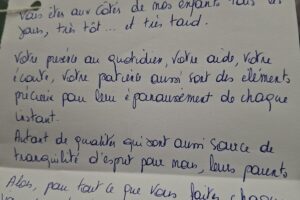 Vous êtes aux côtés de mes enfants tous les
jours, très tôt... et très tard.
Votre présence au quotidien, votre aide, votre
écoute, votre patience aussi sont des éléments
précieux pour leur épanouissement de chaque
instant.
Autant de qualités qui sont aussi source de
tranquilité d'esprit pour nous, leurs parents
Alors, pour tout ce que vous faites chaque